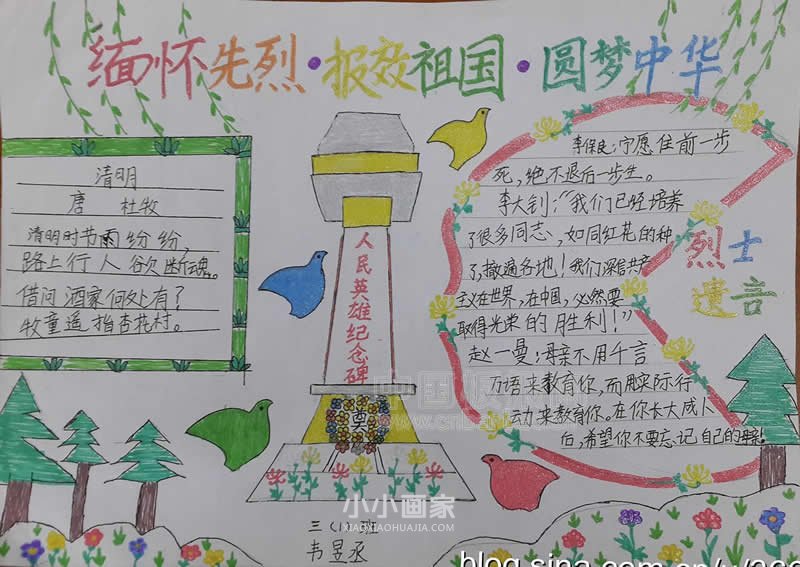 缅怀先烈·报效祖国·圆梦中华
清明
唐 杜牧
清明时节雨纷纷，
路上行人欲断魂。
借问酒家何处有？
牧童遥指杏花村。
人民英雄纪念碑
奠
李保良：宁愿住前一步
死，绝不退后一步生。
李大钊：“我们已经培养
了很多同志，如同红花的种
了，撒遍各地！我们深信共产
主义在世界，在中国，必然要
取得光荣的胜利！”
赵一曼：母亲不用千言
万语来教育你，而用实际行
动来教育你。在你长大成人
后，希望你不要忘记自己的
烈士
遗言
三（1）班
韦昱丞
小小画家
XIAOXIAOHUAJIA.COM
blog.sina.com.cn/u/